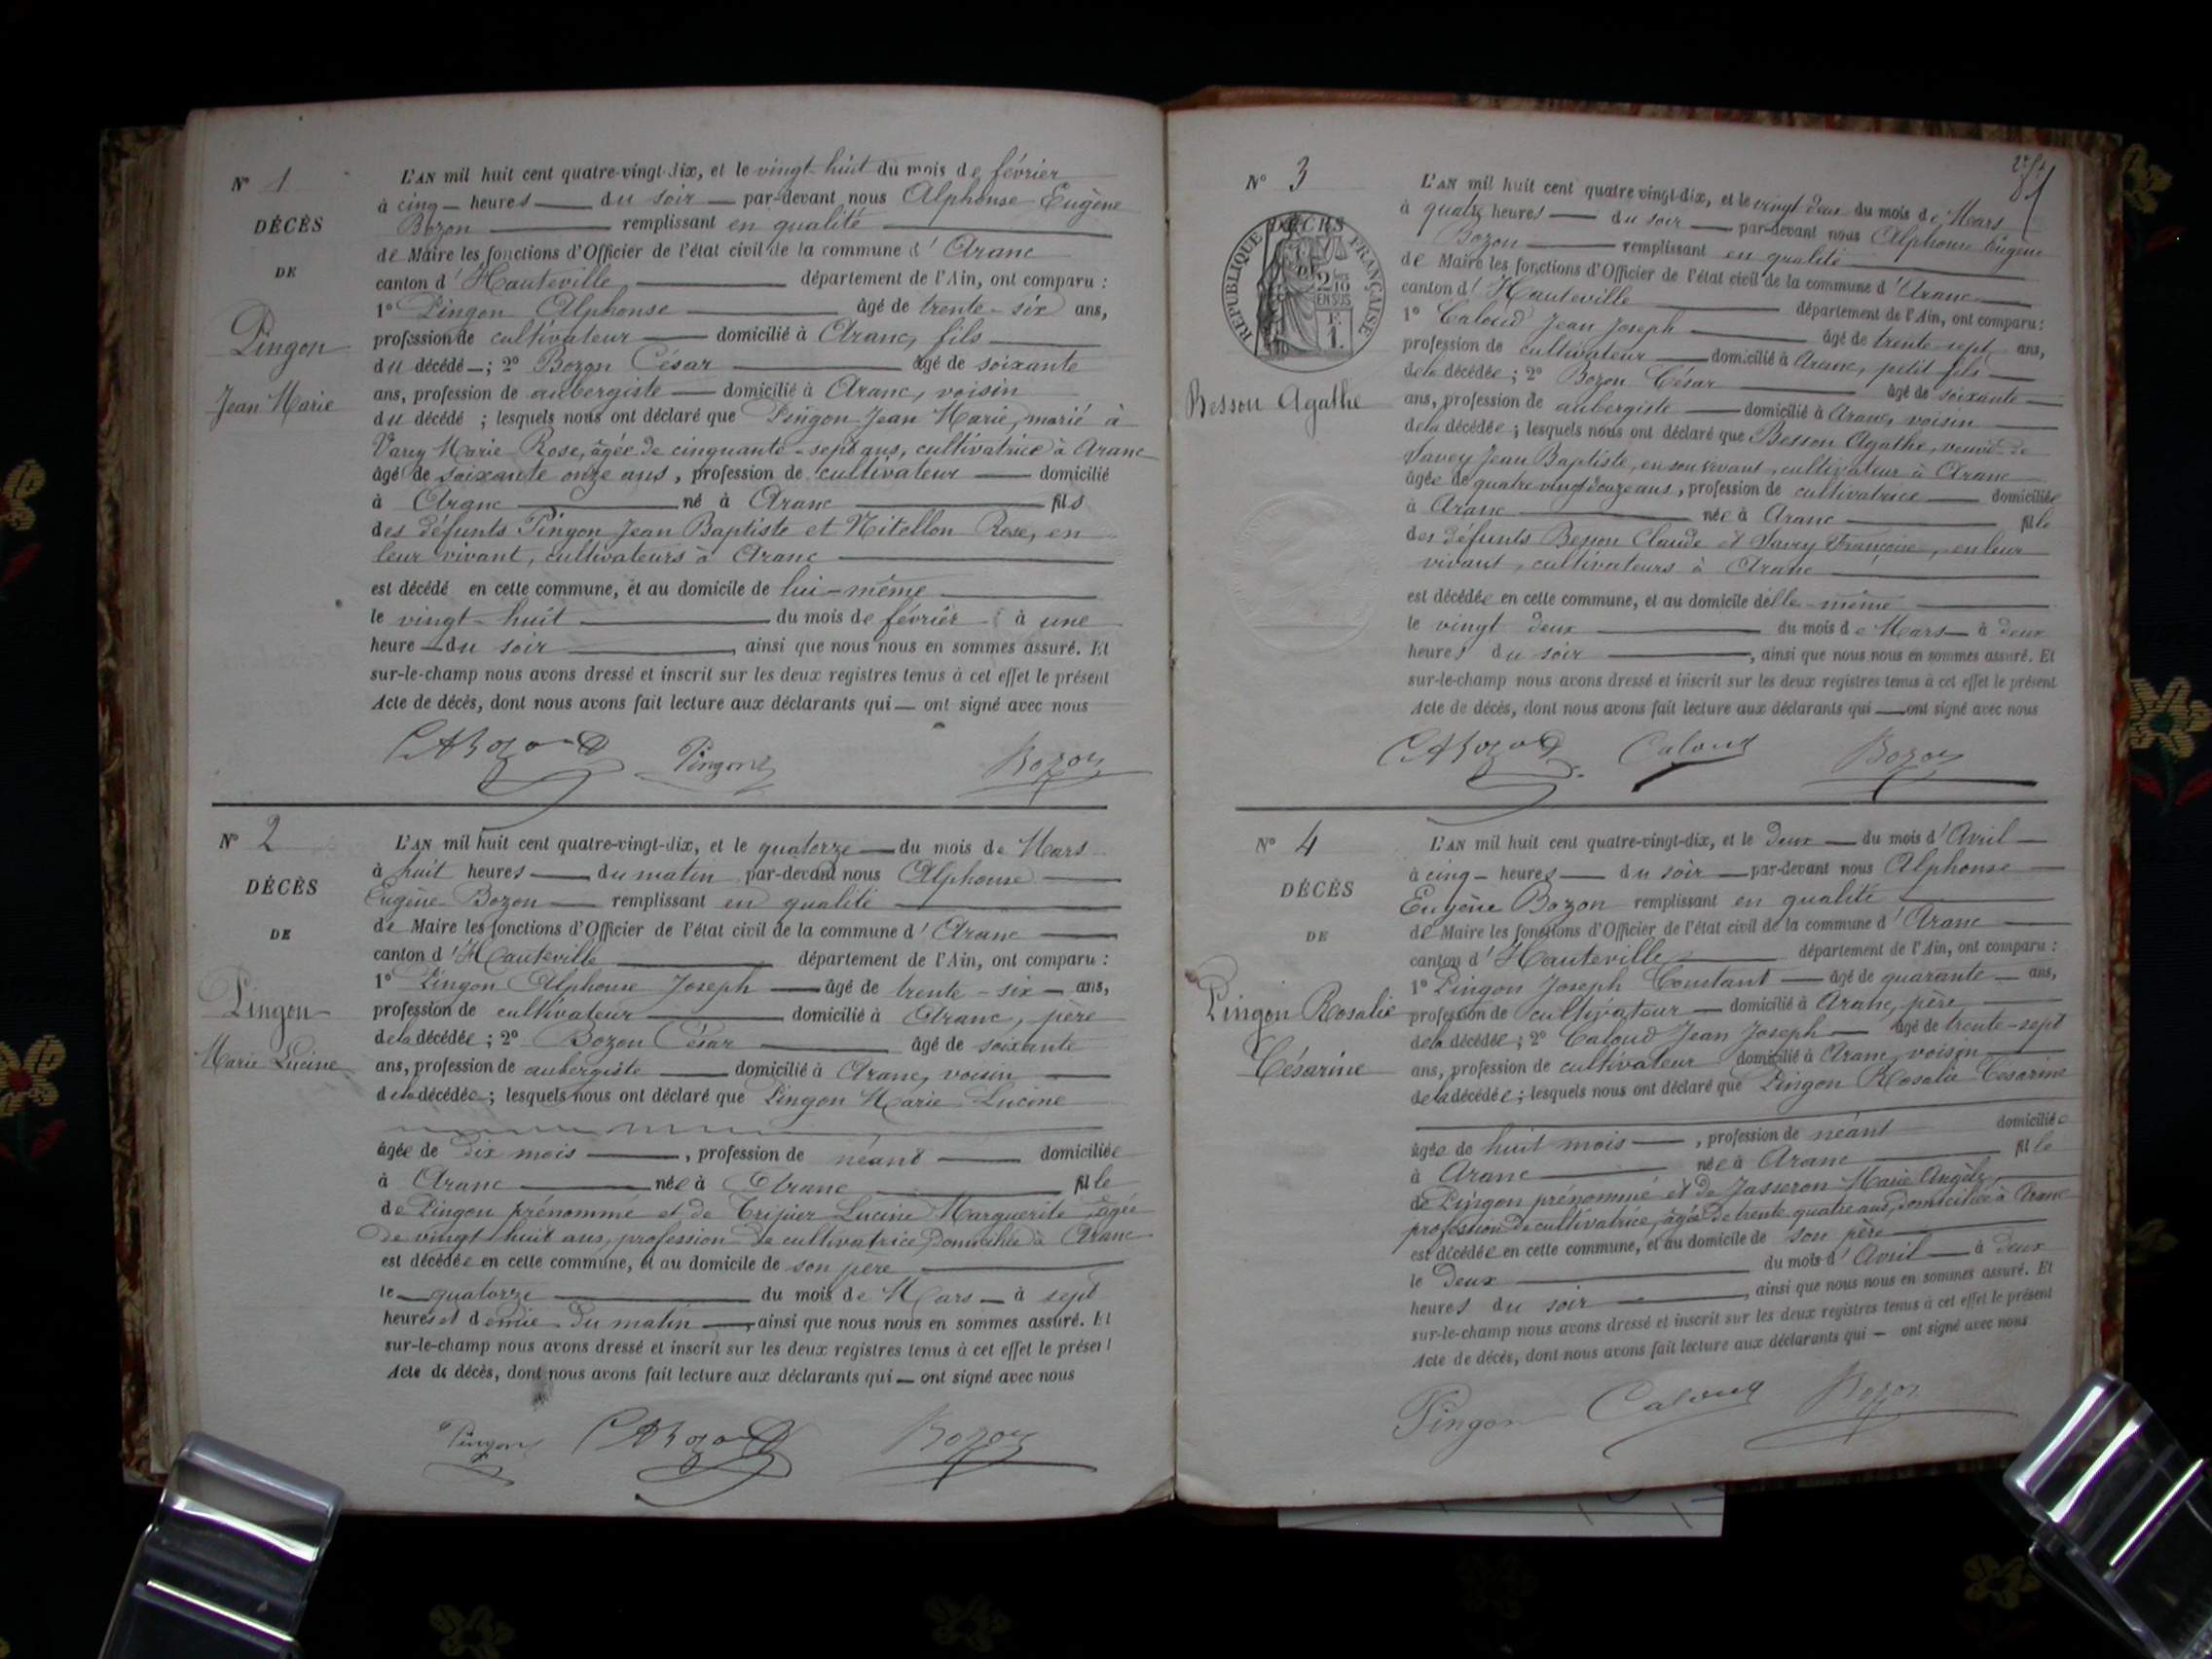 N° 1
DÉCÈS
DE
Pingon
Jean Marie
L'AN mil huit cent quatre-vingt-dix, et le vingt-huit du mois de février
à cinq heures du soir par-devant nous Alphonse Eugène
Bozon remplissant en qualité
de Maire les fonctions d'Officier de l'état civil de la commune d'Aranc
canton d'Hauteville département de l'Ain, ont comparu :
1° Pingon Alphonse âgé de trente-six ans,
profession de cultivateur domicilié à Aranc, fils
du décédé ; 2° Bozon César âgé de soixante
ans, profession de aubergiste domicilié à Aranc, voisin
du décédé ; lesquels nous ont déclaré que Pingon Jean Marie, marié à
Varey Marie Rose, âgée de cinquante-sept ans, cultivatrice à Aranc
âgé de soixante onze ans, profession de cultivateur domicilié
à Aranc né à Aranc fils
des défunts Pingon Jean Baptiste et Rose, en
leur vivant, cultivateurs à Aranc
est décédé en cette commune, et au domicile de lui-même
le vingt-huit du mois de février à une
heure du soir, ainsi que nous nous en sommes assuré. Et
sur-le-champ nous avons dressé et inscrit sur les deux registres tenus à cet effet le présent
Acte de décès, dont nous avons fait lecture aux déclarants qui ont signé avec nous
Pingon Bozon
N° 2
DÉCÈS
DE
Pingon
Marie Lucine
L'AN mil huit cent quatre-vingt-dix, et le quatorze du mois de Mars
à huit heures du matin par-devant nous Alphonse
Eugène Bozon remplissant en qualité
de Maire les fonctions d'Officier de l'état civil de la commune d'Aranc
canton d'Hauteville département de l'Ain, ont comparu :
1° Pingon Alphonse Joseph âgé de trente-six ans,
profession de cultivateur domicilié à Aranc, père
de la décédée ; 2° Bozon César âgé de soixante
ans, profession de aubergiste domicilié à Aranc, voisin
de la décédée ; lesquels nous ont déclaré que Pingon Marie Lucine
âgée de dix mois, profession de néant domiciliée
à Aranc née à Aranc fille
de Pingon prénommé et de Tripier Lucine Marguerite, âgée
de vingt huit ans, profession de cultivatrice, domiciliée à Aranc
est décédée en cette commune, et au domicile de son père
le quatorze du mois de Mars à sept
heures et demie du matin, ainsi que nous nous en sommes assuré. Et
sur-le-champ nous avons dressé et inscrit sur les deux registres tenus à cet effet le présent
Acte de décès, dont nous avons fait lecture aux déclarants qui ont signé avec nous
Pingon Bozon
N° 3
RÉPUBLIQUE FRANÇAISE
DÉCRS
2/10
EN SUS
F.
1.
Besson Agathe
L'AN mil huit cent quatre vingt-dix, et le vingt deux du mois de Mars
à quatre heures du soir par-devant nous Alphonse Eugène
Bozon remplissant en qualité
de Maire les fonctions d'Officier de l'état civil de la commune d'Aranc
canton d'Hauteville département de l'Ain, ont comparu :
1° Caloud Jean Joseph âgé de trente-sept ans,
profession de cultivateur domicilié à Aranc, petit-fils
de la décédée ; 2° Bozon César âgé de soixante
ans, profession de aubergiste domicilié à Aranc, voisin
de la décédée ; lesquels nous ont déclaré que Besson Agathe, veuve de
Savey Jean Baptiste, en son vivant, cultivateur à Aranc
âgée de quatre vingt douze ans, profession de cultivatrice domiciliée
à Aranc née à Aranc fille
des défunts Besson Claude et Savey Françoise, en leur
vivant, cultivateurs à Aranc
est décédée en cette commune, et au domicile d'elle-même
le vingt deux du mois de Mars à deux
heures du soir, ainsi que nous nous en sommes assuré. Et
sur-le-champ nous avons dressé et inscrit sur les deux registres tenus à cet effet le présent
Acte de décès, dont nous avons fait lecture aux déclarants qui ont signé avec nous
Caloud Bozon
N° 4
DÉCÈS
DE
Pingon Rosalie
Césarine
L'AN mil huit cent quatre-vingt-dix, et le deux du mois d'Avril
à cinq heures du soir par-devant nous Alphonse
Eugène Bozon remplissant en qualité
de Maire les fonctions d'Officier de l'état civil de la commune d'Aranc
canton d'Hauteville département de l'Ain, ont comparu :
1° Pingon Joseph Constant âgé de quarante ans,
profession de cultivateur domicilié à Aranc, père
de la décédée ; 2° Caloud Jean Joseph âgé de trente-sept
ans, profession de cultivateur domicilié à Aranc, voisin
de la décédée ; lesquels nous ont déclaré que Pingon Rosalie Césarine
âgée de huit mois, profession de néant domiciliée
à Aranc née à Aranc fille
de Pingon prénommé et de Jasseron Marie Angèle,
profession de cultivatrice, âgée de trente quatre ans, domiciliée à Aranc
est décédée en cette commune, et au domicile de son père
le deux du mois d'Avril à deux
heures du soir, ainsi que nous nous en sommes assuré. Et
sur-le-champ nous avons dressé et inscrit sur les deux registres tenus à cet effet le présent
Acte de décès, dont nous avons fait lecture aux déclarants qui ont signé avec nous
Pingon Caloud Bozon